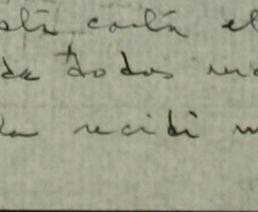 está carta el
de todos
la recibi